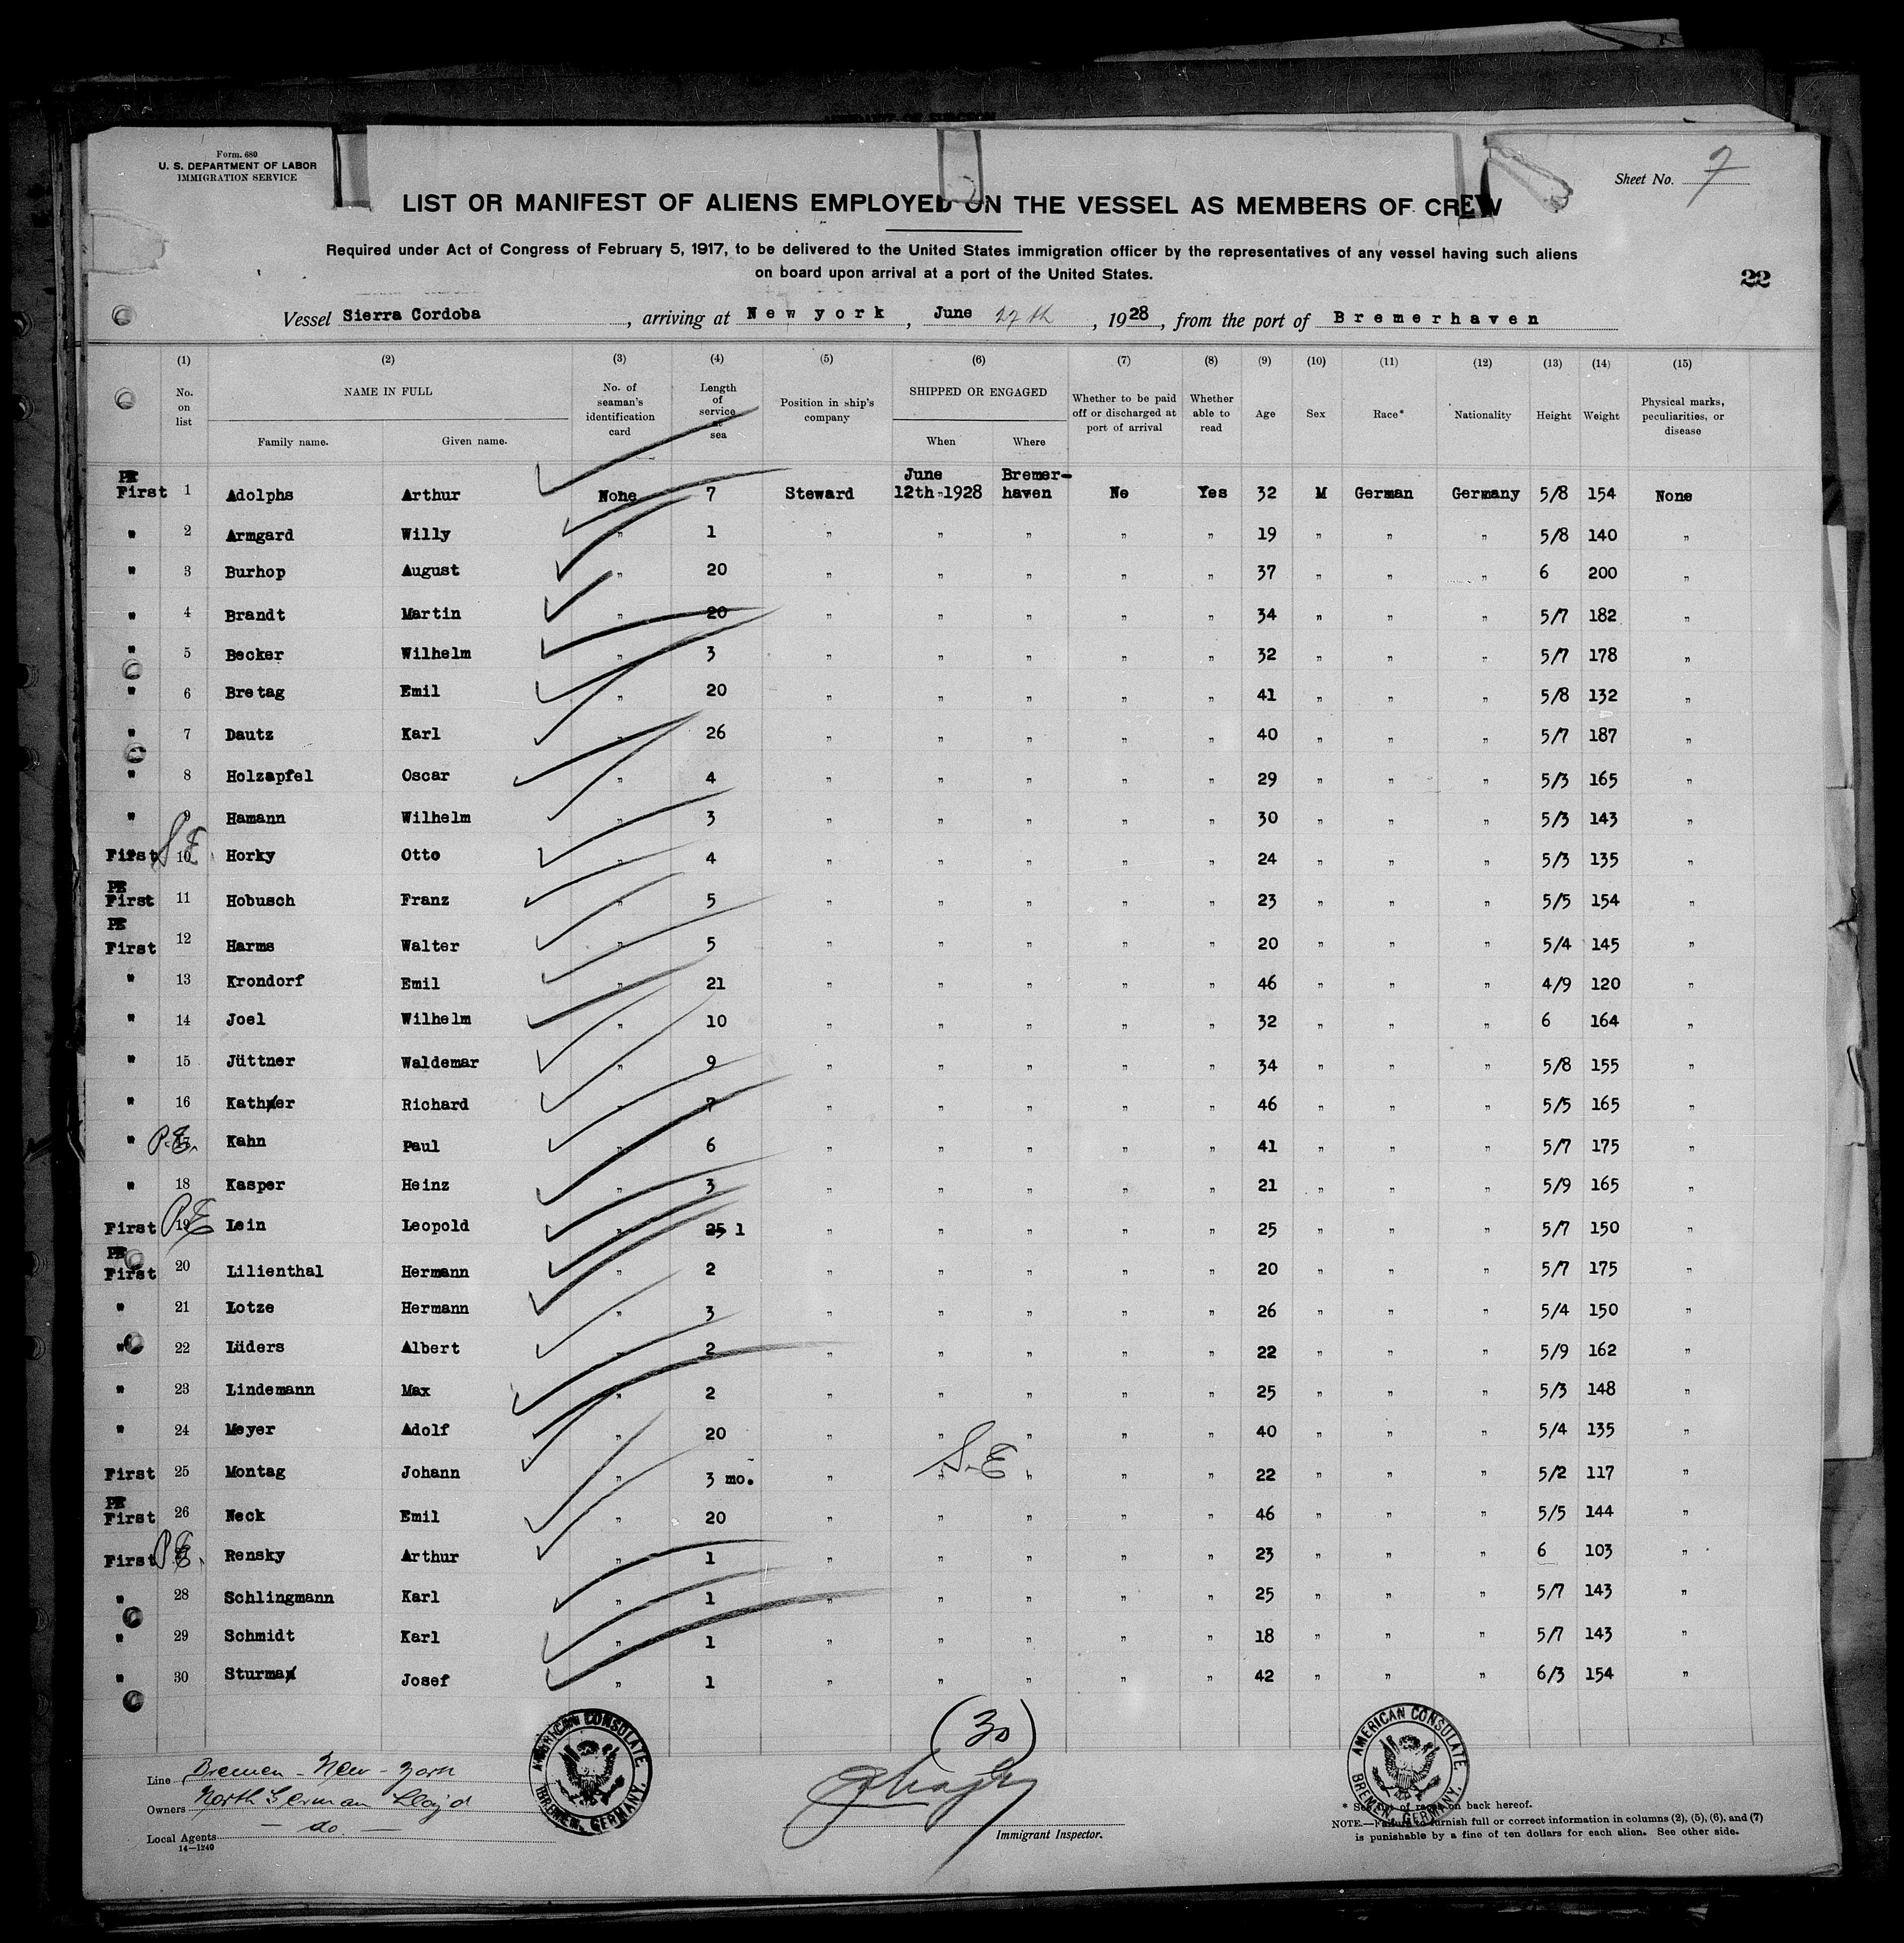 Form. 680
U. S. DEPARTMENT OF LABOR
IMMIGRATION SERVICE
Sheet No. 7
LIST OR MANIFEST OF ALIENS EMPLOYED ON THE VESSEL AS MEMBERS OF CREW
Required under Act of Congress of February 5, 1917, to be delivered to the United States immigration officer by the representatives of any vessel having such aliens
on board upon arrival at a port of the United States.
22
Vessel Sierra Cordoba, arriving at New york, June 27th, 1928, from the port of Bremerhaven
(1) (2) (3) (4) (5) (6) (7) (8) (9) (10) (11) (12) (13) (14) (15)
No. on list NAME IN FULL Family name. Given name. No. of seaman's identification card Length of service at sea Position in ship's company SHIPPED OR ENGAGED When Where Whether to be paid off or discharged at port of arrival Whether able to read Age Sex Race* Nationality Height Weight Physical marks, peculiarities, or disease
First 1 Adolphs Arthur None 7 Steward June 12th-1928 Bremer-haven No Yes 32 M German Germany 5/8 154 None
" 2 Armgard Willy " 1 " " " " " 19 " " " 5/8 140 "
" 3 Burhop August " 20 " " " " " 37 " " " 6 200 "
" 4 Brandt Martin " 20 " " " " " 34 " " " 5/7 182 "
" 5 Becker Wilhelm " 3 " " " " " 32 " " " 5/7 178 "
" 6 Bretag Emil " 20 " " " " " 41 " " " 5/8 132 "
" 7 Dautz Karl " 26 " " " " " 40 " " " 5/7 187 "
" 8 Holzapfel Oscar " 4 " " " " " 29 " " " 5/3 165 "
" 9 Hamann Wilhelm " 3 " " " " " 30 " " " 5/3 143 "
First S.E. 10 Horky Otto " 4 " " " " " 24 " " " 5/3 135 "
First 11 Hobusch Franz " 5 " " " " " 23 " " " 5/5 154 "
First 12 Harms Walter " 5 " " " " " 20 " " " 5/4 145 "
" 13 Krondorf Emil " 21 " " " " " 46 " " " 4/9 120 "
" 14 Joel Wilhelm " 10 " " " " " 32 " " " 6 164 "
" 15 Jüttner Waldemar " 9 " " " " " 34 " " " 5/8 155 "
" 16 Kather Richard " 7 " " " " " 46 " " " 5/5 165 "
" P.E. 17 Kahn Paul " 6 " " " " " 41 " " " 5/7 175 "
" 18 Kasper Heinz " 3 " " " " " 21 " " " 5/9 165 "
First P.E. 19 Lein Leopold " 25 1 " " " " " 25 " " " 5/7 150 "
First 20 Lilienthal Hermann " 2 " " " " " 20 " " " 5/7 175 "
" 21 Lotze Hermann " 3 " " " " " 26 " " " 5/4 150 "
" 22 Lüders Albert " 2 " " " " " 22 " " " 5/9 162 "
" 23 Lindemann Max " 2 " " " " " 25 " " " 5/3 148 "
" 24 Meyer Adolf " 20 " " " " " 40 " " " 5/4 135 "
First 25 Montag Johann " 3 mo. " " S.E. " " " 22 " " " 5/2 117 "
First 26 Neck Emil " 20 " " " " " 46 " " " 5/5 144 "
First P.E. Rensky Arthur " 1 " " " " " 23 " " " 6 103 "
" 28 Schlingmann Karl " 1 " " " " " 25 " " " 5/7 143 "
" 29 Schmidt Karl " 1 " " " " " 18 " " " 5/7 143 "
" 30 Sturma Josef " 1 " " " " " 42 " " " 6/3 154 "
(30)
AMERICAN CONSULATE BREMEN, GERMANY.
AMERICAN CONSULATE BREMEN, GERMANY.
Line Bremen - New - York
Owners North German Lloyd
Local Agents - do. -
14—1240
Immigrant Inspector.
* See list of races on back hereof.
NOTE.—Failure to furnish full or correct information in columns (2), (5), (6), and (7)
is punishable by a fine of ten dollars for each alien. See other side.